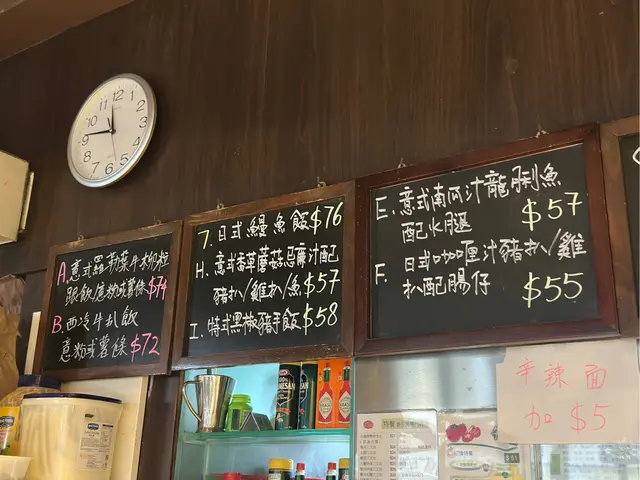 A. 意式羅勒葉牛柳粒
跟飯/意粉或薯條$74
B. 西冷牛扒飯
意粉或薯條$72
7. 日式鰻魚飯$76
H. 意式香草蘑菇忌廉汁配
豬扒/雞扒/魚$57
I. 特式黑椒豬手飯$58
E. 意式南瓜汁龍脷魚
配火腿 $57
F. 日式咖喱汁豬扒/雞
扒配腸仔 $55
辛辣面
加 $5
12
1
2
3
4
5
6
7
8
9
10
11
TABASCO
TABASCO